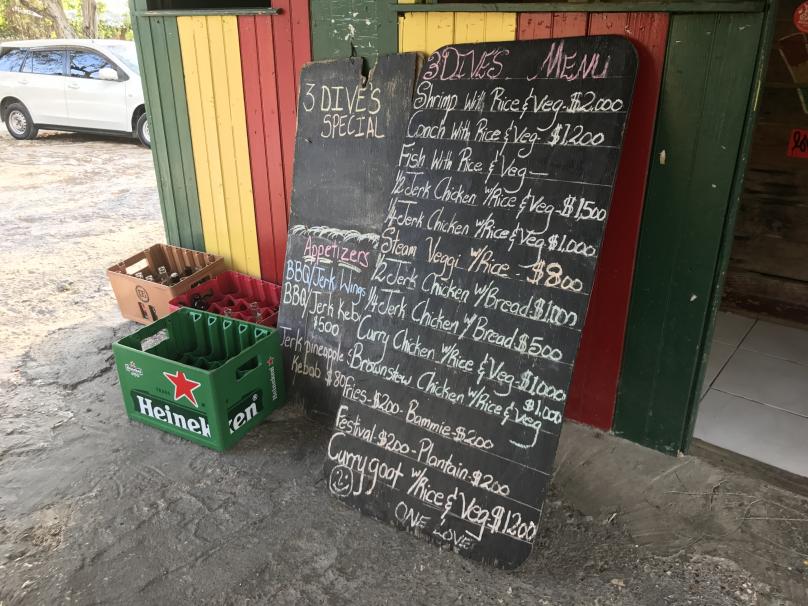 3 DIVE'S
SPECIAL
Appetizers
BBQ/Jerk Wings
BBQ/Jerk Keb
$500
Jerk pineapple
Kebab $80
3 DIVE'S MENU
Shrimp With Rice & Veg - $2,000
Conch With Rice & Veg - $1200
Fish With Rice & Veg -
1/2 Jerk Chicken w/Rice & Veg - $1,500
1/4 Jerk Chicken w/Rice & Veg $1,000
Steam Veggi w/Rice - $800
1/2 Jerk Chicken w/Bread - $1,000
1/4 Jerk Chicken w/Bread $500
Curry Chicken w/Rice & Veg - $1,000
Brownstew Chicken w/Rice & Veg $1,000
Fries - $200 - Bammie - $200
Festival - $200 - Plantain - $200
Curry goat w/Rice & Veg - $1200
ONE LOVE
Heineken
Heineken